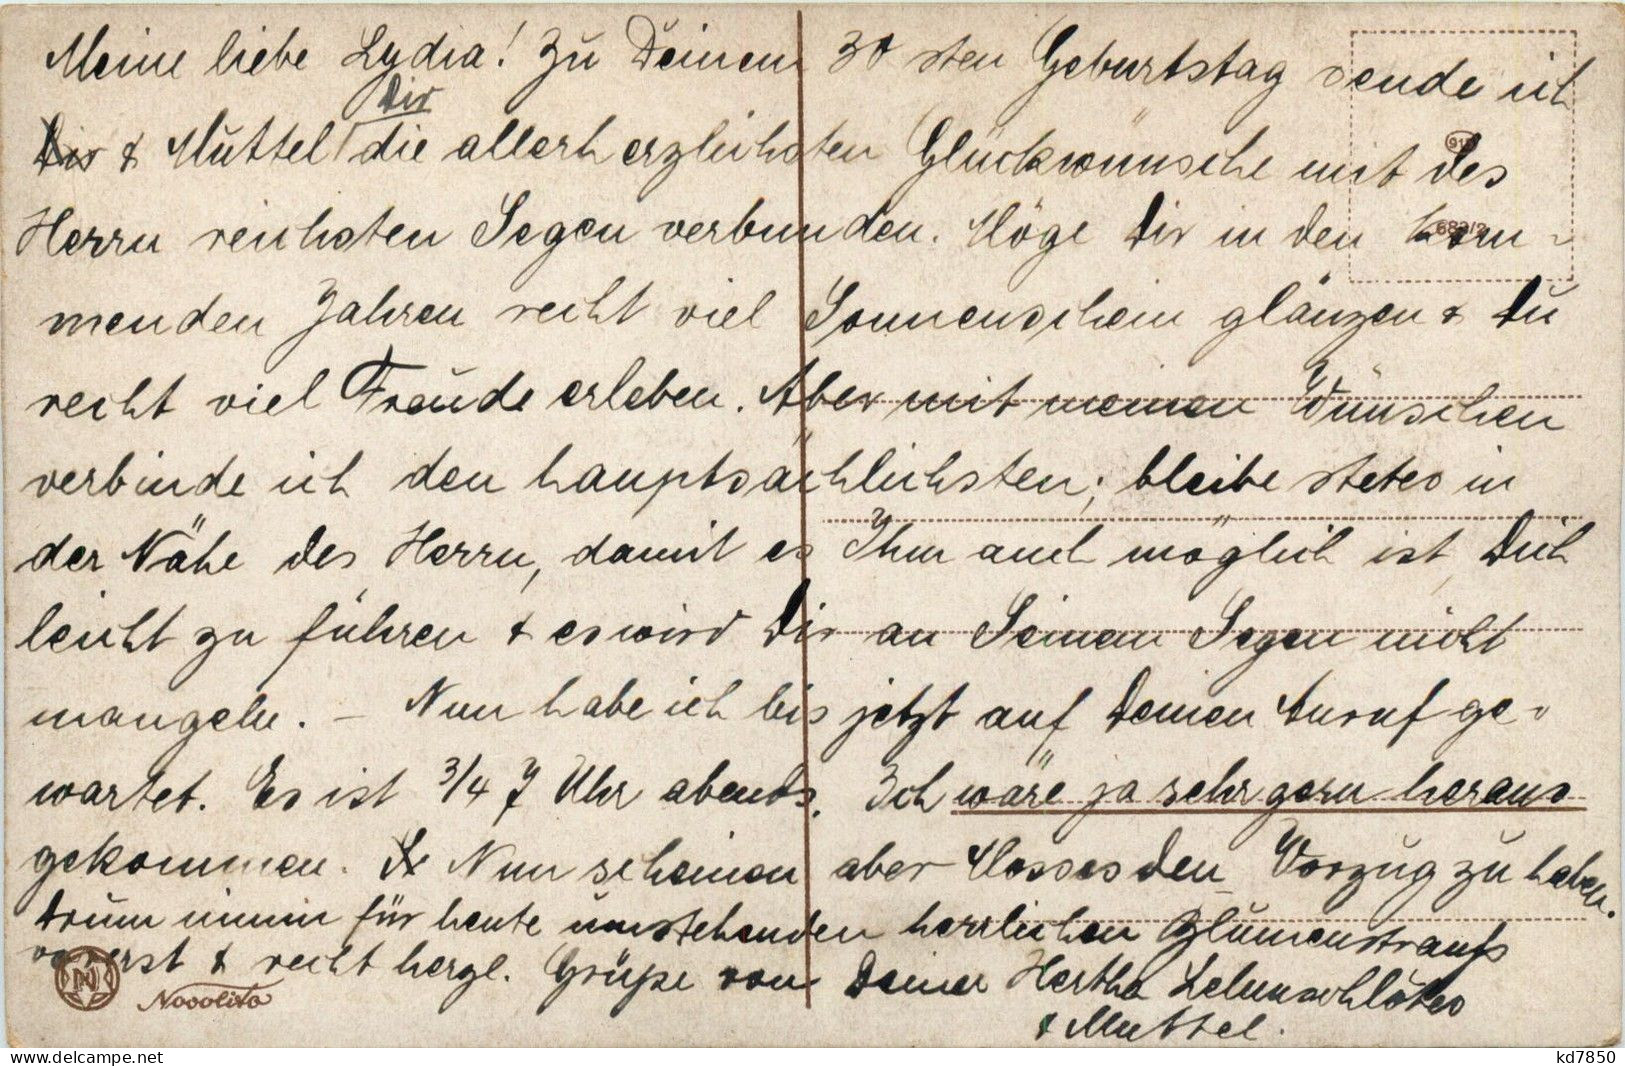 Meine liebe Lydia! Zu Deinem 30 sten Geburtstag sende ich
Dir
Dir & Muttel die allerherzlichsten Glückwünsche mit des
Herrn reichsten Segen verbunden. Möge Dir in den kom-
menden Jahren recht viel Sonnenschein glänzen & Du
recht viel Freude erleben. Aber mit meinen Wünschen
verbinde ich den hauptsächlichsten; bleibe stetes in
der Nähe des Herrn, damit es Ihm auch möglich ist, Dich
leicht zu führen & es wird Dir an Seinem Segen nicht
mangeln. – Nun habe ich bis jetzt auf Deinen Anruf ge-
wartet. Es ist 3/4 7 Uhr abends. Ich wäre ja sehr gern heraus
gekommen. Nun scheinen aber den Vorzug zu haben.
Drum nimm für heute umstehenden herrlichen Blumenstrauß
vorerst & recht herzl. Grüße von Deiner Hertha
& Muttel.
N
Novolito
delcampe.net
kd7850